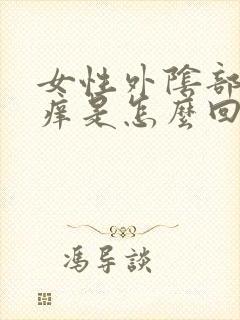 女性外陰部
痒是怎麼回
馮导談